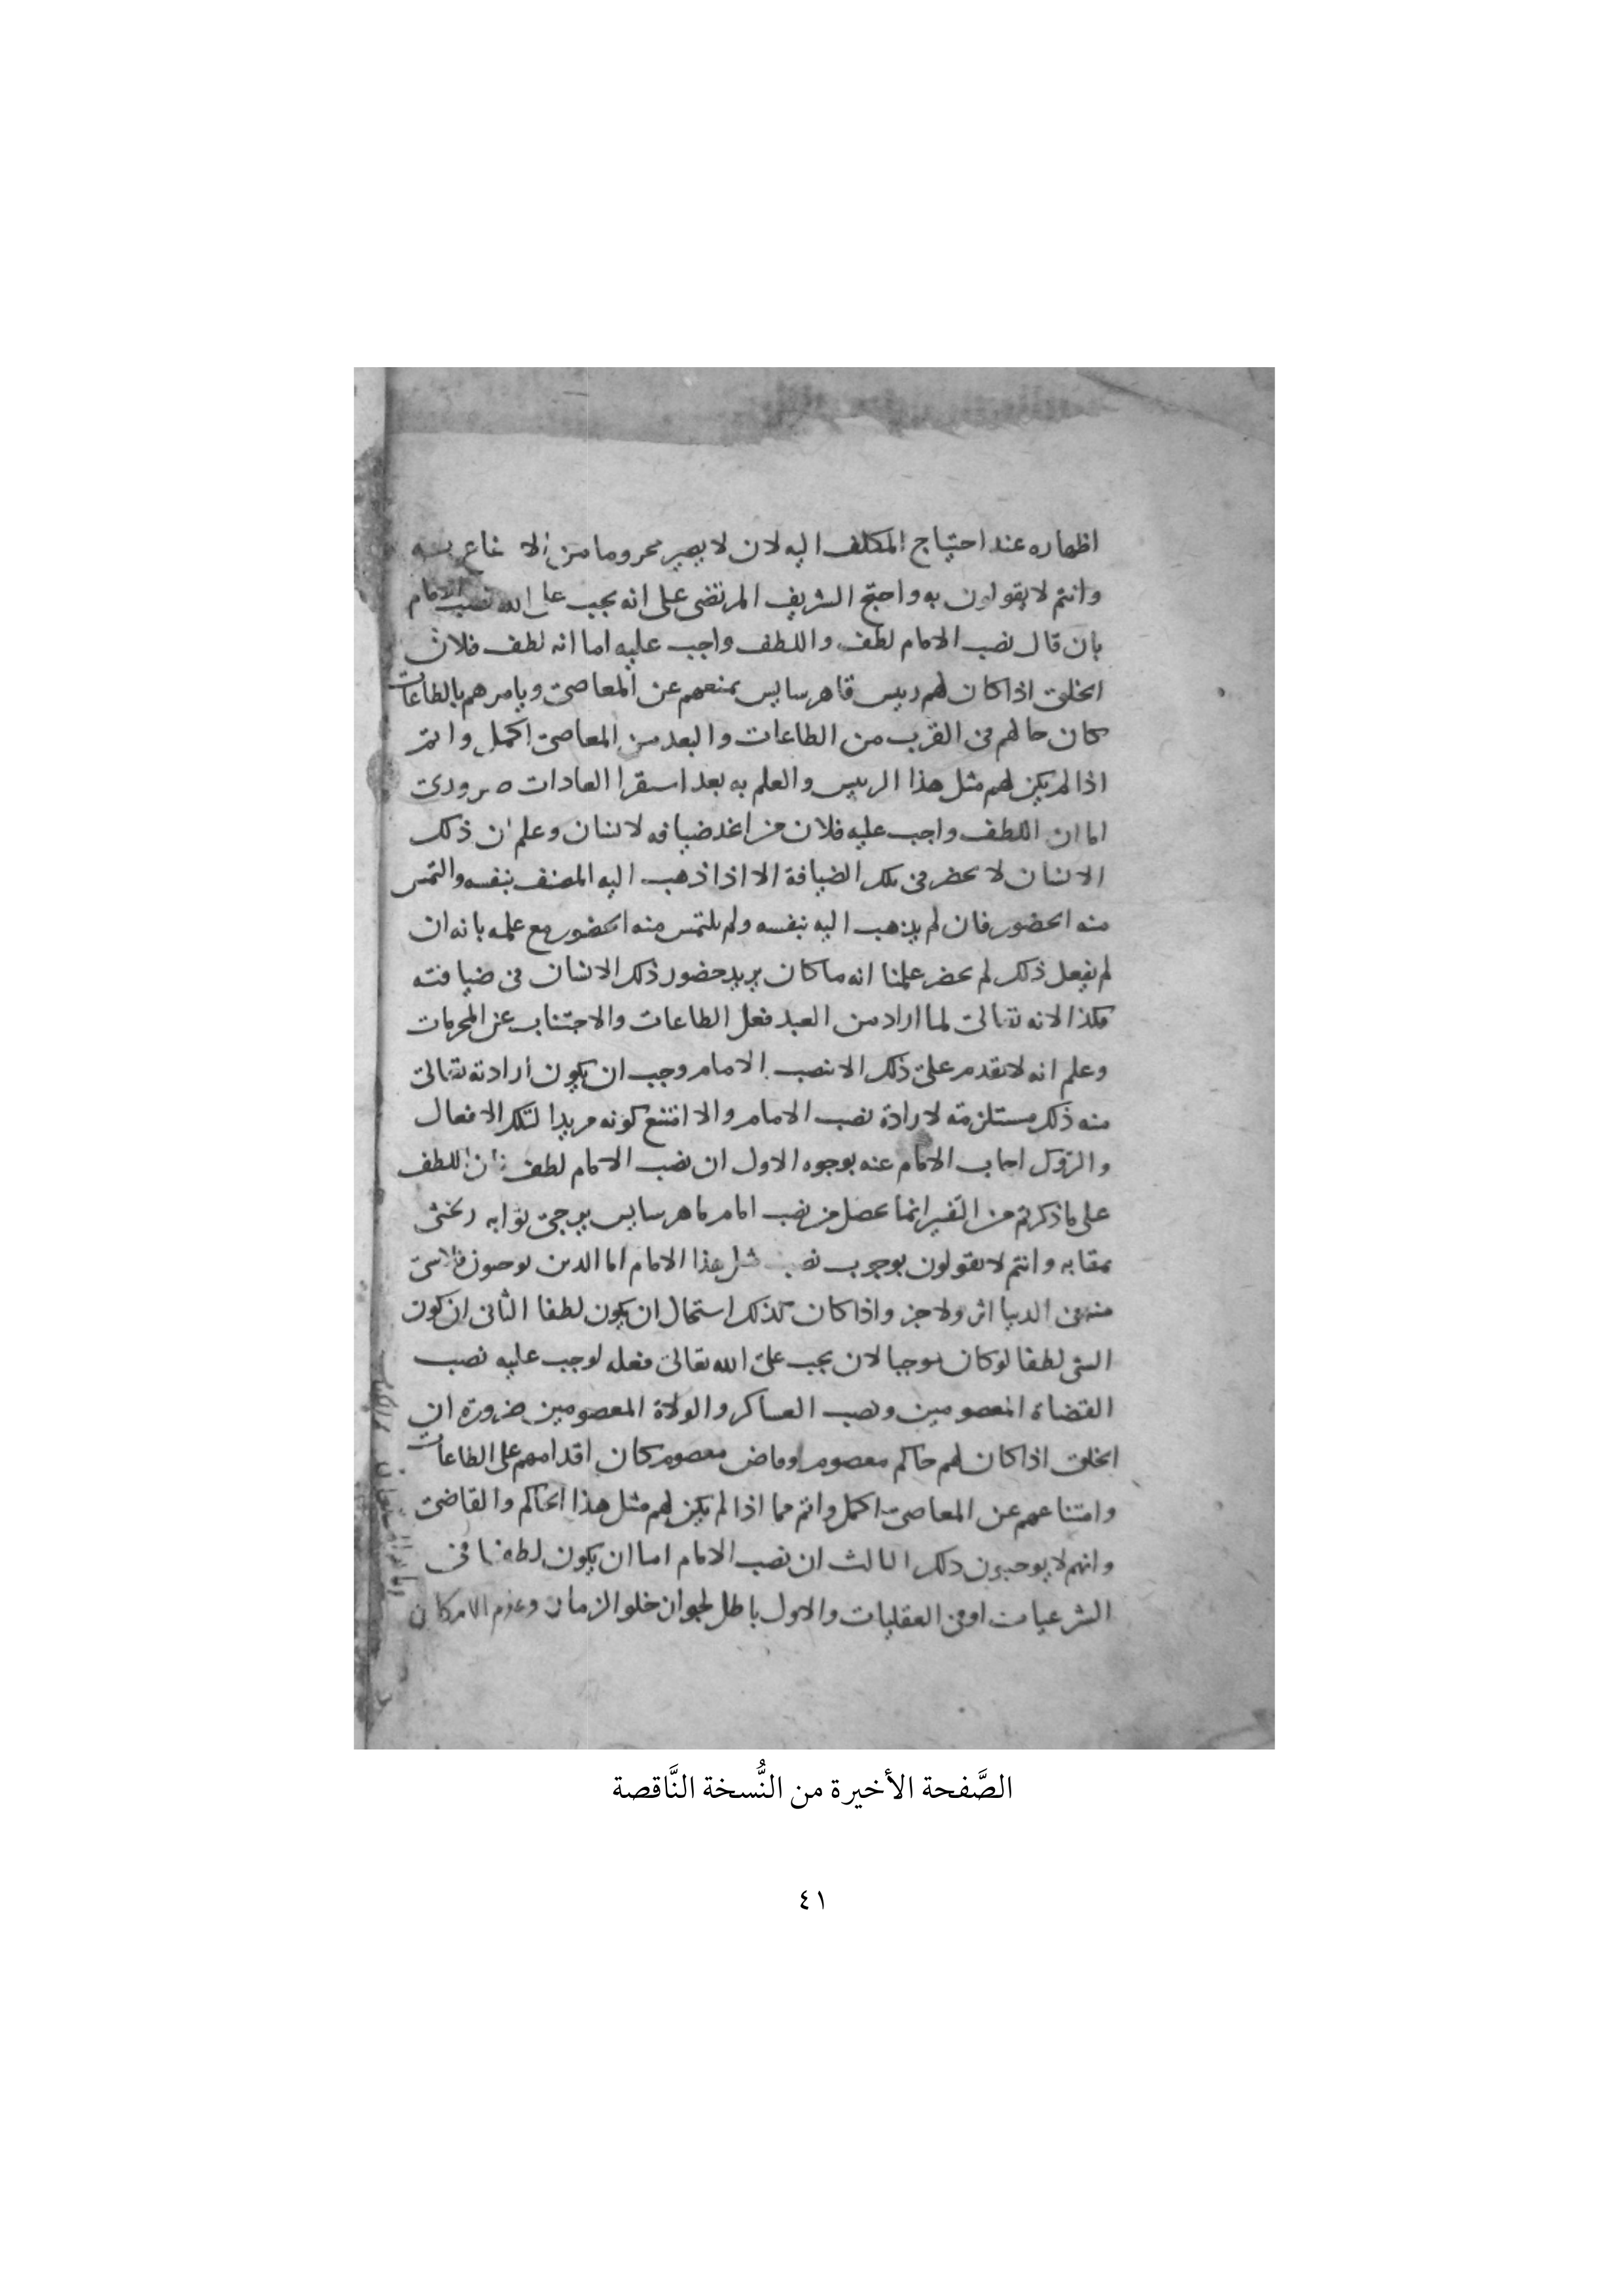 اظهاره عند احتياج المكلف اليه لان لا يصير محروما من الا
وانتم لا يقولون به واحتج الشريف المرتضى على انه يجب على الله نصب الامام
بان قال نصب الامام لطف واللطف واجب عليه اما انه لطف فلان
الخلق اذا كان لهم رييس قاهر سايس يمنعهم عن المعاصى ويامرهم بالطاعات
كان حالهم فى القرب من الطاعات والبعد من المعاصى اكمل واتم
اذا لم يكن لهم مثل هذا الرييس والعلم به بعد استقرا العادات ضرورى
اما ان اللطف واجب عليه فلان من اعد ضيافه لانسان وعلم ان ذلك
الانسان لا يحضر فى تلك الضيافة الا اذا ذهب اليه المضيف بنفسه والتمس
منه الحضور فان لم يذهب اليه بنفسه ولم يلتمس منه الحضور مع علمه بانه ان
لم يفعل ذلك لم يحضر علمنا انه ما كان يريد حضور ذلك الانسان فى ضيافته
فكذا لانه تعالى لما اراد من العبد فعل الطاعات والاجتناب عن المحرمات
وعلم انه لا يقدم على ذلك الا بنصب الامام وجب ان يكون ارادته تعالى
منه ذلك مستلزمة لارادة نصب الامام والا امتنع كونه مريدا لتلك الافعال
والتروك اجاب الامام عنه بوجوه الاول ان نصب الامام لطف اللطف
على ما ذكرتم من التفسير انما يحصل من نصب امام قاهر سايس يرجى ثوابه ويخشى
عقابه وانتم لا يقولون بوجوب نصب مثل هذا الامام اما الذين يوجبون
منه فى الدنيا اثر ولا خبر واذا كان كذلك استحال ان يكون لطفا الثانى ان كون
الشى لطفا لو كان موجبا لان يجب على الله تعالى فعله لوجب عليه نصب
القضاة المعصومين ونصب العساكر والولاة المعصومين ضرورة ان
الخلق اذا كان لهم حاكم معصوم او قاض معصوم كان اقدامهم على الطاعات
وامتناعهم عن المعاصى اكمل واتم مما اذا لم يكن لهم مثل هذا الحاكم والقاضى
وانهم لا يوجبون ذلك الثالث ان نصب الامام اما ان يكون لطفا فى
الشرعيات او فى العقليات والاول باطل لجواز خلو الزمان وعدم
الصَّفحة الأخيرة من النُّسخة النَّاقصة
٤١